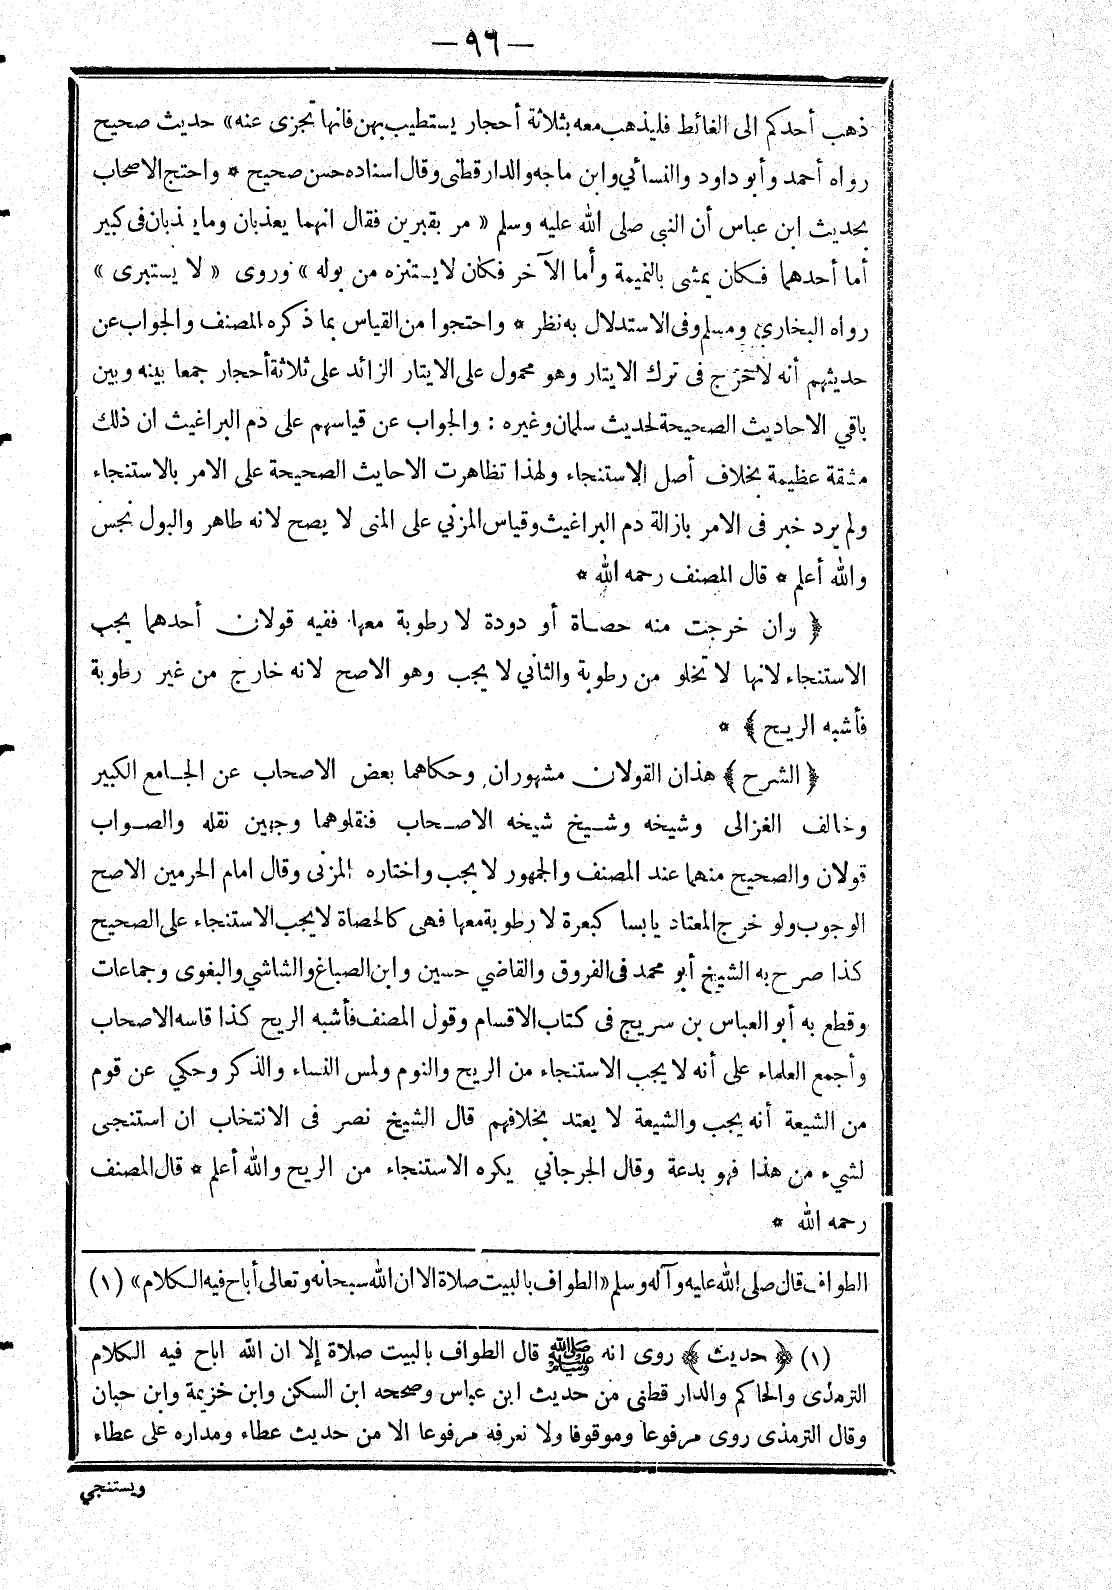 — ٩٦ —
ذهب أحدكم الى الغائط فليذهب معه بثلاثة أحجار يستطيب بهن فانها تجزى عنه» حديث صحيح
رواه أحمد وأبو داود والنسائي وابن ماجه والدارقطنى وقال اسناده حسن صحيح * واحتج الاصحاب
بحديث ابن عباس أن النبى صلى الله عليه وسلم « مر بقبرين فقال انهما يعذبان وما يذبان فى كبير
أما أحدهما فكان يمشى بالنميمة وأما الآخر فكان لا يستنزه من بوله » وروى « لا يستبرى »
رواه البخارى ومسلم وفى الاستدلال به نظر * واحتجوا من القياس بما ذكره المصنف والجواب عن
حديثهم أنه لا حرج فى ترك الايتار وهو محمول على الايتار الزائد على ثلاثة أحجار جمعا بينه وبين
باقي الاحاديث الصحيحة لحديث سلمان وغيره : والجواب عن قياسهم على دم البراغيث ان ذلك
مشقة عظيمة بخلاف أصل الاستنجاء ولهذا تظاهرت الاحايث الصحيحة على الامر بالاستنجاء
ولم يرد خبر فى الامر بازالة دم البراغيث وقياس المزني على المنى لا يصح لانه طاهر والبول نجس
والله أعلم * قال المصنف رحمه الله *
﴿ وان خرجت منه حصاة أو دودة لا رطوبة معها ففيه قولان أحدهما يجب
الاستنجاء لانها لا تخلو من رطوبة والثاني لا يجب وهو الاصح لانه خارج من غير رطوبة
فأشبه الريح ﴾ *
﴿ الشرح ﴾ هذان القولان مشهوران وحكاهما بعض الاصحاب عن الجامع الكبير
وخالف الغزالى وشيخه وشيخ شيخه الاصحاب فنقلوهما وجهين نقله والصواب
قولان والصحيح منهما عند المصنف والجمهور لا يجب واختاره المزنى وقال امام الحرمين الاصح
الوجوب ولو خرج المعتاد يابسا كبعرة لا رطوبة معها فهى كالحصاة لا يجب الاستنجاء على الصحيح
كذا صرح به الشيخ أبو محمد فى الفروق والقاضي حسين وابن الصباغ والشاشي والبغوى وجماعات
وقطع به أبو العباس بن سريج فى كتاب الاقسام وقول المصنف فأشبه الريح كذا قاسه الاصحاب
وأجمع العلماء على أنه لا يجب الاستنجاء من الريح والنوم ولمس النساء والذكر وحكي عن قوم
من الشيعة أنه يجب والشيعة لا يعتد بخلافهم قال الشيخ نصر فى الانتخاب ان استنجى
لشيء من هذا فهو بدعة وقال الجرجاني يكره الاستنجاء من الريح والله أعلم * قال المصنف
رحمه الله *
الطواف قال صلى الله عليه وآله وسلم «الطواف بالبيت صلاة الا ان الله سبحانه وتعالى أباح فيه الكلام» (١)
(١) ﴿ حديث ﴾ روى انه ﷺ قال الطواف بالبيت صلاة إلا ان الله اباح فيه الكلام
الترمذى والحاكم والدار قطنى من حديث ابن عباس وصححه ابن السكن وابن خزيمة وابن حبان
وقال الترمذى روى مرفوعا وموقوفا ولا نعرفه مرفوعا الا من حديث عطاء ومداره على عطاء
ويستنجي